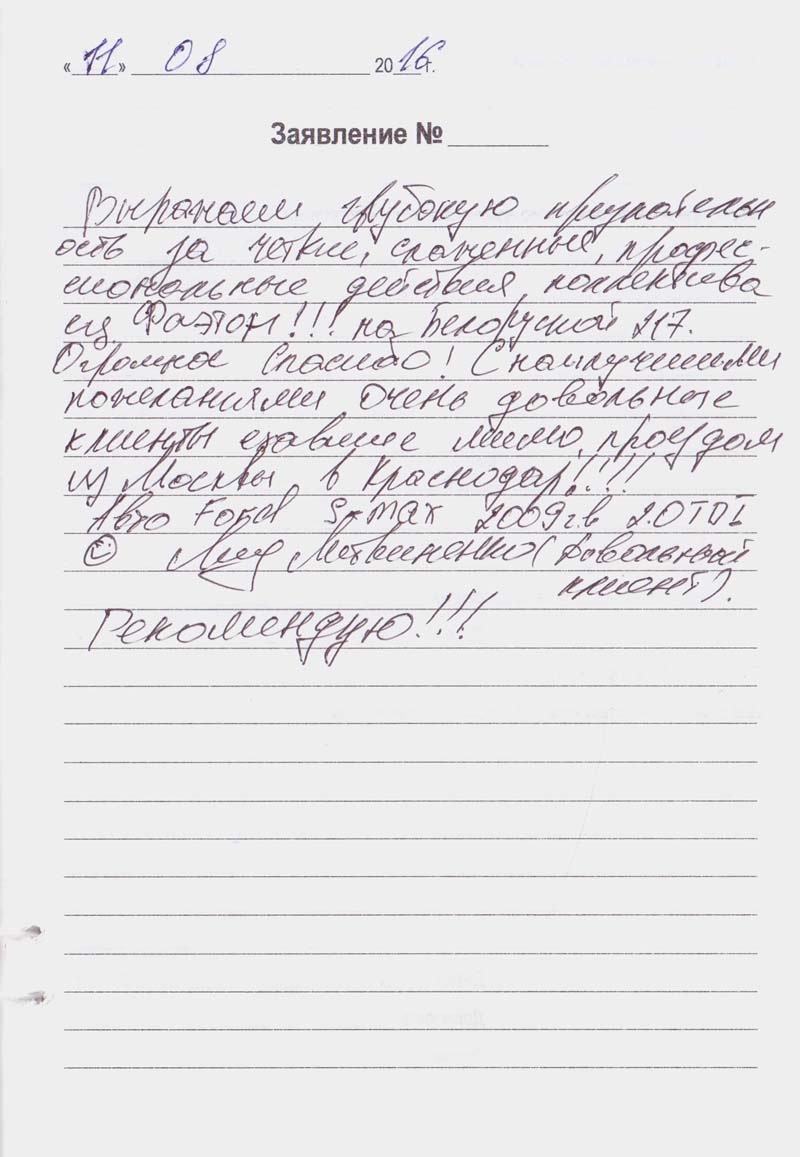 «11» 08 2016 г.
Заявление №
Выражаем глубокую признательн
ость за четкие, слаженные, профес-
сиональные действия, коллектива
сц Фаэтон!!! на Белоруской 217.
Огромное Спасибо! С наилучшими
пожеланиями очень довольные
клиенты ехавшие мимо, проездом
из Москвы в Краснодар!!!!
Авто Ford S-max 2009г.в 2.0 TDI
Литвиненко (Довольный
клиент).
Рекомендую!!!